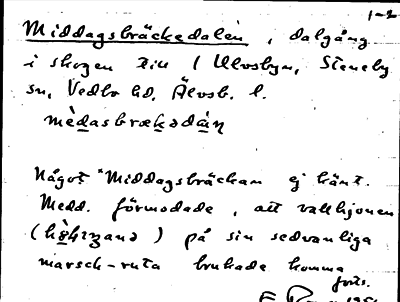 1-2
Middagsbräckedalen, dalgång
i skogen till / Ulvsbyn, Steneby
sn, Vedbo hd, Älvsb. l.
mèdasbrækədàn
Något "Middagsbräckan ej känt.
Medd. förmodade, att vallhjonen
( ) på sin sedvanliga
marsch-ruta brukade komma
forts.